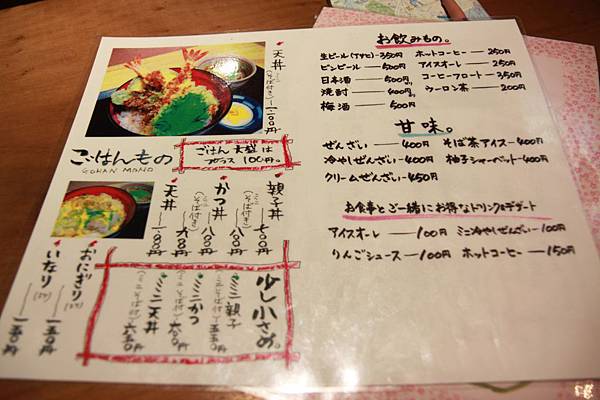 天丼
(そば付き)
ごはんもの
GOHAN MONO
ごはん 大盛は
プラス 100円。
親子丼 ― 七〇〇円
かつ丼 (そば付き) ― 八〇〇円
天丼 (そば付き)
おにぎり ― 一五〇円
いなり ― 一五〇円
少し小さめ。
ミニ親子
ミニかつ
ミニ天丼
お飲みもの。
生ビール(アサヒ)―350円
ビンビール ― 500円
日本酒 ― 500円
焼酎
梅酒 ― 500円
ホットコーヒー ― 250円
アイスオーレ ― 250円
コーヒーフロート ― 350円
ウーロン茶 ― 200円
甘味。
ぜんざい ― 400円
冷やしぜんざい ― 400円
クリームぜんざい ― 450円
そば茶アイス ― 400円
柚子シャーベット ― 400円
お食事とご一緒にお得なドリンク&デザート
アイスオーレ ― 100円
りんごジュース ― 100円
ミニ冷やしぜんざい ― 100円
ホットコーヒー ― 150円